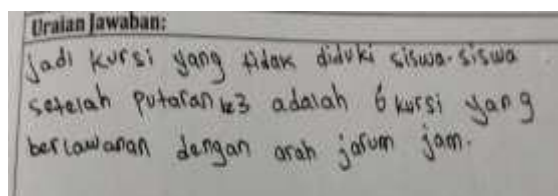 Uraian Jawaban:
Jadi kursi yang tidak diduki siswa-siswa
setelah putaran ke3 adalah 6 kursi yang
berlawanan dengan arah jarum jam.